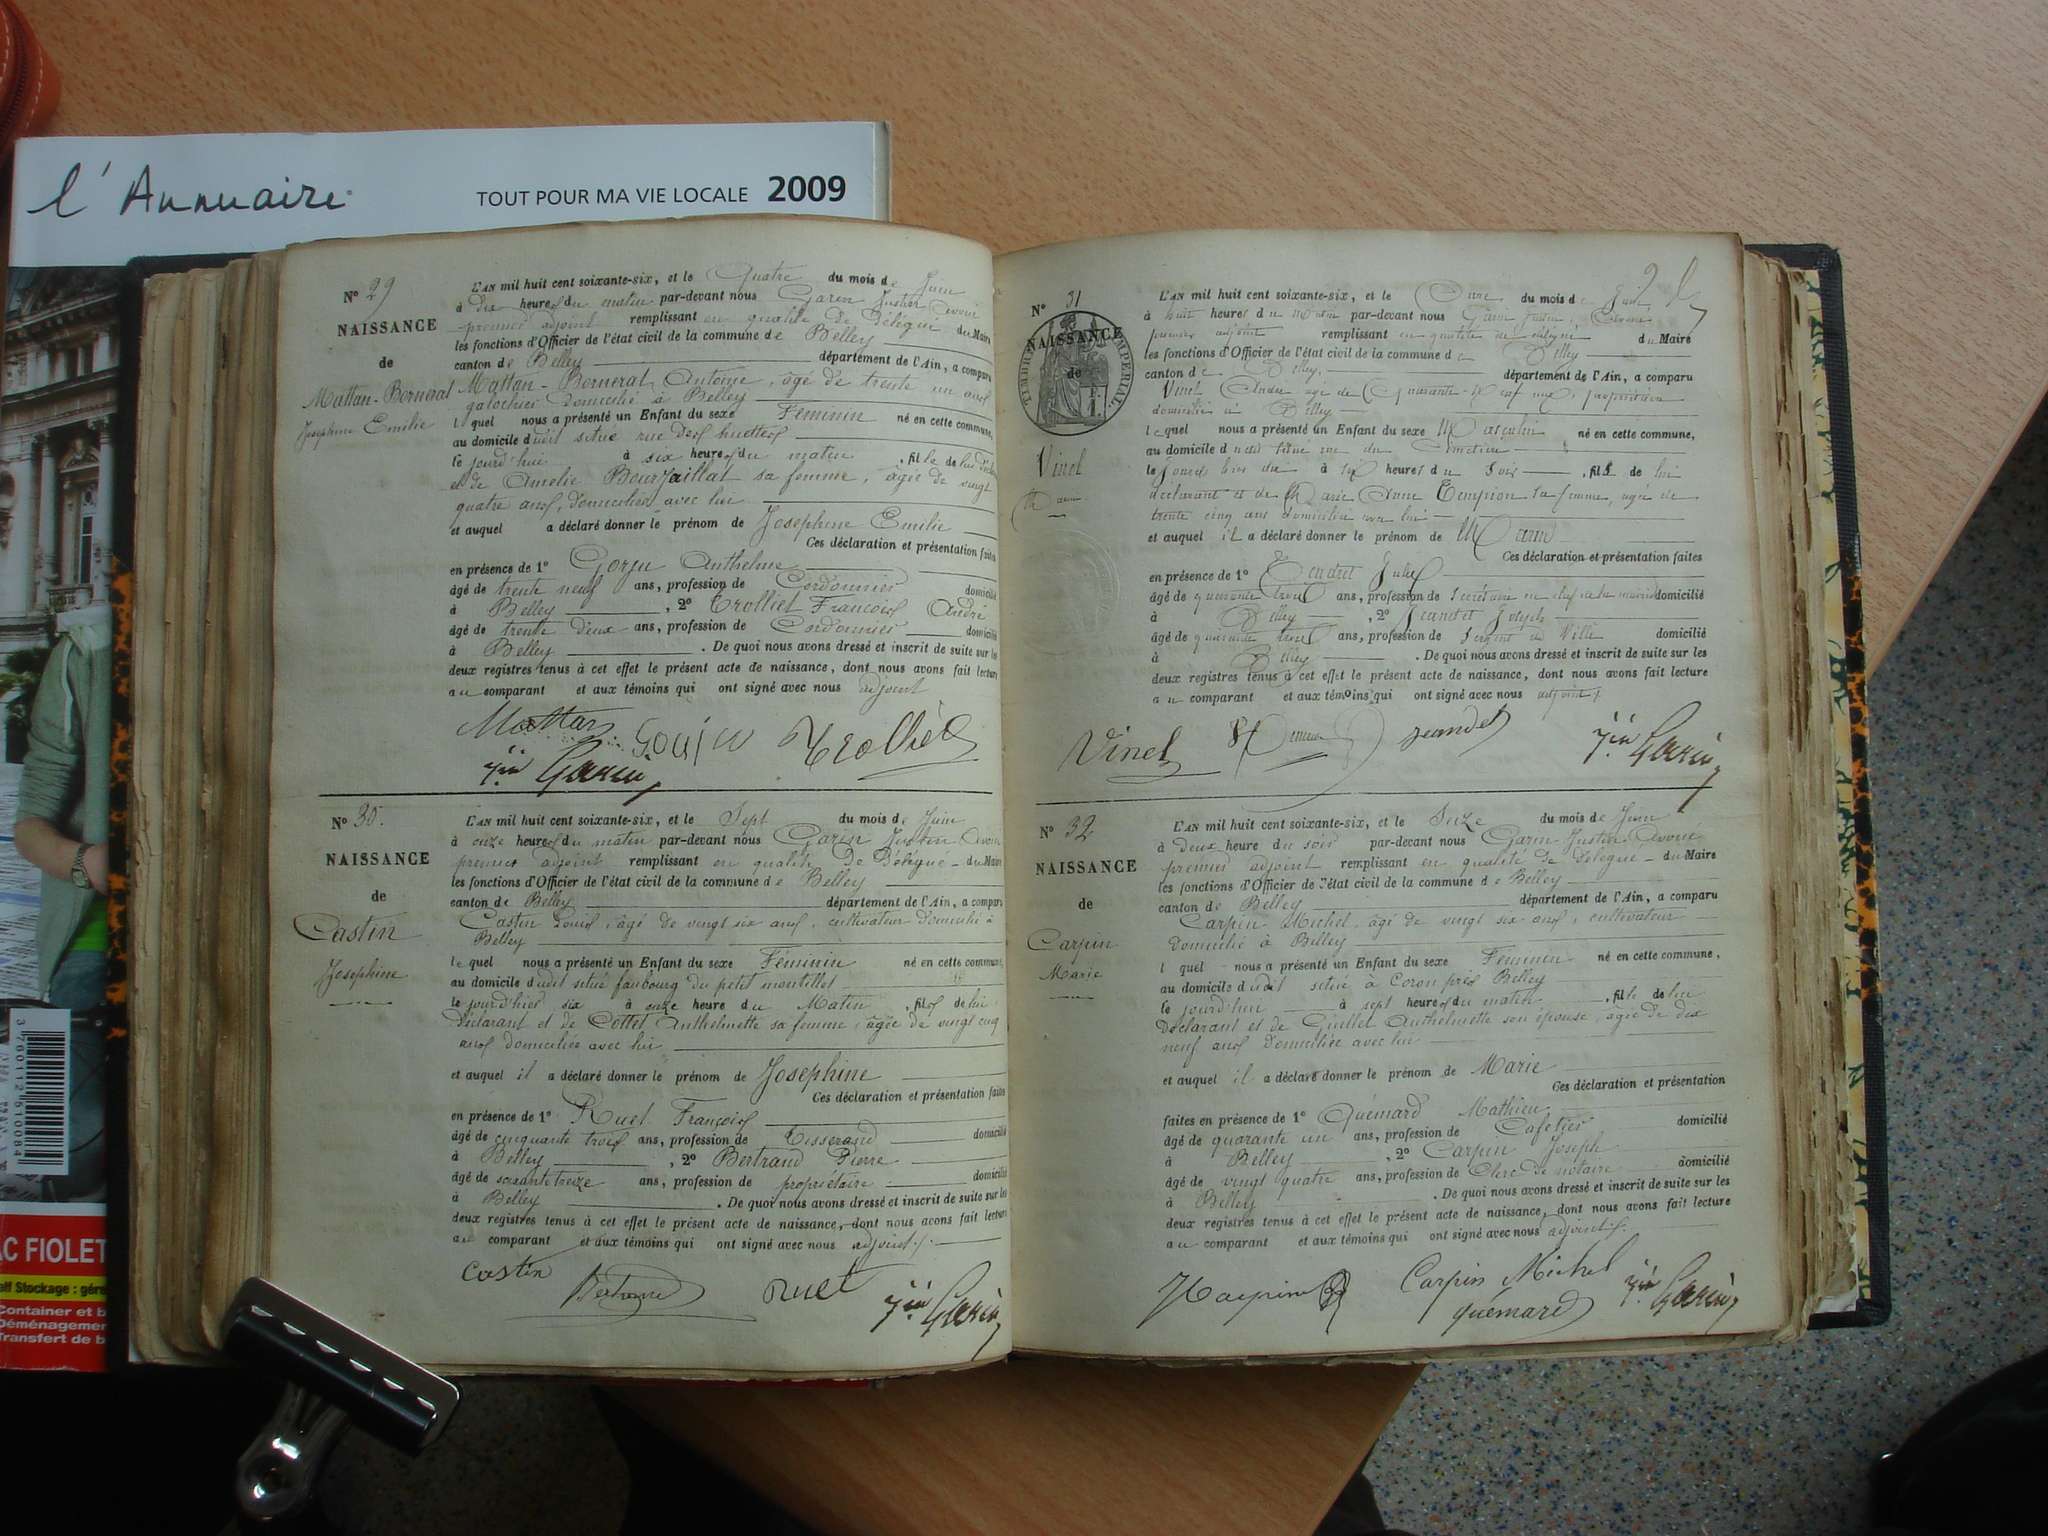 l'Annuaire
TOUT POUR MA VIE LOCALE 2009
N° 29
NAISSANCE
de
Mattan-Bernerat
Josephine Emilie
L'AN mil huit cent soixante-six, et le Quatre du mois de Juin
à dix heures du matin par-devant nous Garin Justin avoué
premier adjoint remplissant en qualité de Délégué du Maire
les fonctions d'Officier de l'état civil de la commune de Belley
canton de Belley département de l'Ain, a comparu
Mattan-Bernerat Antoine, âgé de trente un ans
galochier domicilié à Belley
lequel nous a présenté un Enfant du sexe Féminin né en cette commune,
au domicile dudit situé rue des huettes
le jourd'hui à six heures du matin, fille de lui déclarant
et de Amélie Bourjaillat sa femme, âgée de vingt
quatre ans, domiciliée avec lui
et auquel a déclaré donner le prénom de Josephine Emilie
Ces déclaration et présentation faites
en présence de 1° Gorju Anthelme
âgé de trente neuf ans, profession de Cordonnier domicilié
à Belley, 2° Trolliet François André
âgé de trente deux ans, profession de Cordonnier domicilié
à Belley. De quoi nous avons dressé et inscrit de suite sur les
deux registres tenus à cet effet le présent acte de naissance, dont nous avons fait lecture
au comparant et aux témoins qui ont signé avec nous adjoint
Mattan Gorju Trolliet
Jin Garin
N° 30.
NAISSANCE
de
Castin
Josephine
L'AN mil huit cent soixante-six, et le Sept du mois de Juin
à onze heures du matin par-devant nous Garin Justin Avoué
premier adjoint remplissant en qualité de Délégué du Maire
les fonctions d'Officier de l'état civil de la commune de Belley
canton de Belley département de l'Ain, a comparu
Castin Louis, âgé de vingt six ans, cultivateur domicilié à
Belley
lequel nous a présenté un Enfant du sexe Féminin né en cette commune,
au domicile dudit situé faubourg du petit montillet
le jourd'hier six à onze heure du Matin, fils de lui
déclarant et de Cottet Anthelmette sa femme, âgée de vingt cinq
ans domiciliée avec lui
et auquel il a déclaré donner le prénom de Josephine
Ces déclaration et présentation faites
en présence de 1° Ruet François
âgé de cinquante trois ans, profession de Tisserand domicilié
à Belley, 2° Bertrand Pierre
âgé de soixante treize ans, profession de propriétaire domicilié
à Belley. De quoi nous avons dressé et inscrit de suite sur les
deux registres tenus à cet effet le présent acte de naissance, dont nous avons fait lecture
au comparant et aux témoins qui ont signé avec nous adjoint
Castin Bertrand Ruet Jin Garin
N° 31
NAISSANCE
de
TIMBRE IMPERIAL
F. 1.
Vinel
L'AN mil huit cent soixante-six, et le Onze du mois de Juin
à huit heures du matin par-devant nous Garin Justin, Avoué
premier adjoint remplissant en qualité de délégué du Maire
les fonctions d'Officier de l'état civil de la commune de Belley
canton de Belley. département de l'Ain, a comparu
Vinel âgé de Quarante neuf ans, propriétaire
domicilié à Belley
lequel nous a présenté un Enfant du sexe Masculin né en cette commune,
au domicile dudit situé rue du Cimetière
le jourd'hier dix à six heures du Soir, fils de lui
déclarant et de Marie Anne Tempion sa femme, agée de
trente cinq ans domiciliée avec lui
et auquel il a déclaré donner le prénom de
Ces déclaration et présentation faites
en présence de 1° Tendret Jules
âgé de quarante trois ans, profession de Secrétaire en chef de la mairie domicilié
à Belley, 2° Jeandet Joseph
âgé de quarante trois ans, profession de Sergent de Ville domicilié
à Belley. De quoi nous avons dressé et inscrit de suite sur les
deux registres tenus à cet effet le présent acte de naissance, dont nous avons fait lecture
au comparant et aux témoins qui ont signé avec nous adjoint
Vinel Jeandet Jin Garin
N° 32
NAISSANCE
de
Carpin
Marie
L'AN mil huit cent soixante-six, et le Onze du mois de Juin
à deux heure du soir par-devant nous Garin Justin Avoué
premier adjoint remplissant en qualité de Délégué du Maire
les fonctions d'Officier de l'état civil de la commune de Belley
canton de Belley département de l'Ain, a comparu
Carpin Michel, âgé de vingt six ans, cultivateur
domicilié à Belley
lquel nous a présenté un Enfant du sexe Féminin né en cette commune,
au domicile dudit situé à Coron près Belley
le jourd'hui à sept heures du matin, fille de lui
Déclarant et de Guillet Anthelmette son épouse, âgée de dix
neuf ans domiciliée avec lui
et auquel il a déclaré donner le prénom de Marie
Ces déclaration et présentation
faites en présence de 1° Quémard Mathieu
âgé de quarante un ans, profession de Cafetier domicilié
à Belley, 2° Carpin Joseph
âgé de vingt quatre ans, profession de Clerc de notaire domicilié
à Belley. De quoi nous avons dressé et inscrit de suite sur les
deux registres tenus à cet effet le présent acte de naissance, dont nous avons fait lecture
au comparant et aux témoins qui ont signé avec nous adjoint.
Carpin Michel Jin Garin
quémard
3 760112 510084
AC FIOLET
Self Stockage : gére
Container et b
Déménagemen
Transfert de b